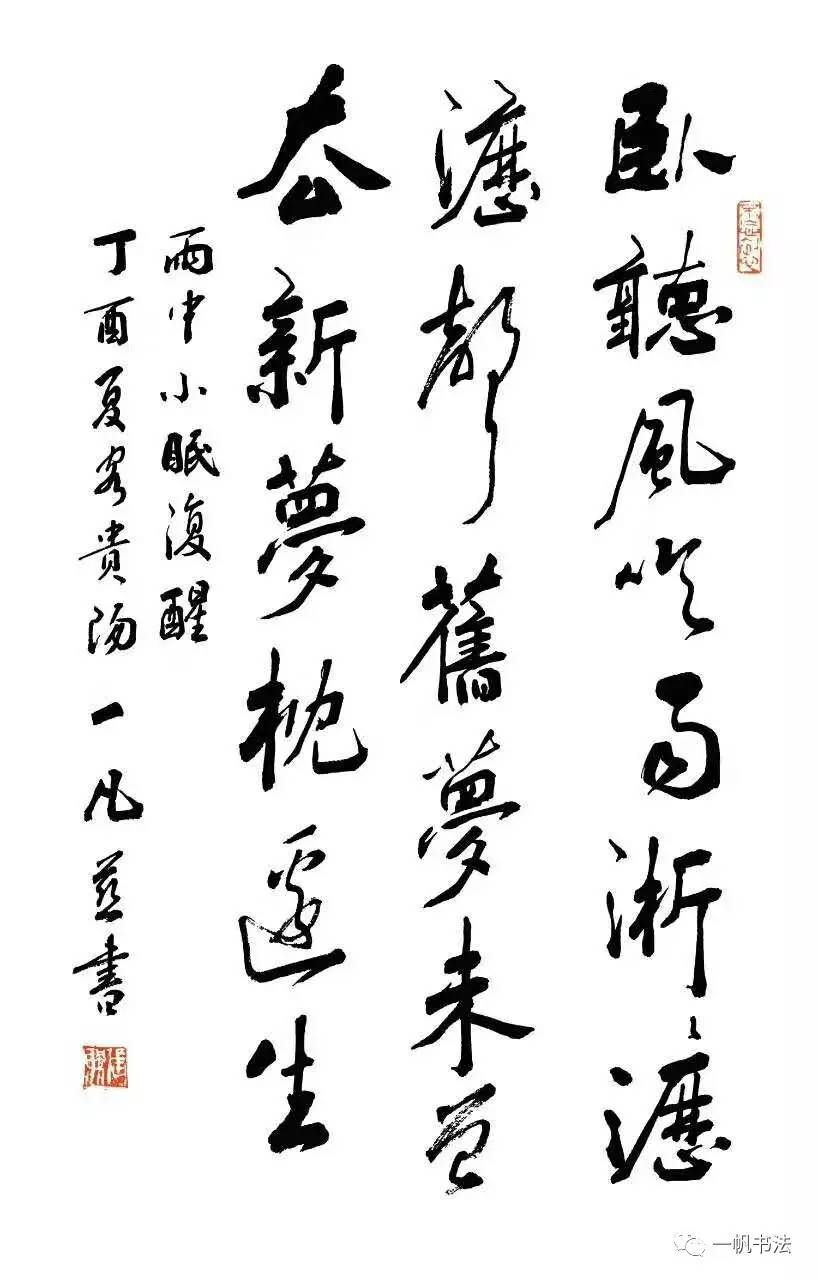 卧聽風吹雨淅〻瀝
瀝聲舊夢未曾
去新夢枕邊生
雨中小眠復醒
丁酉夏客貴陽一凡並書
一帆书法